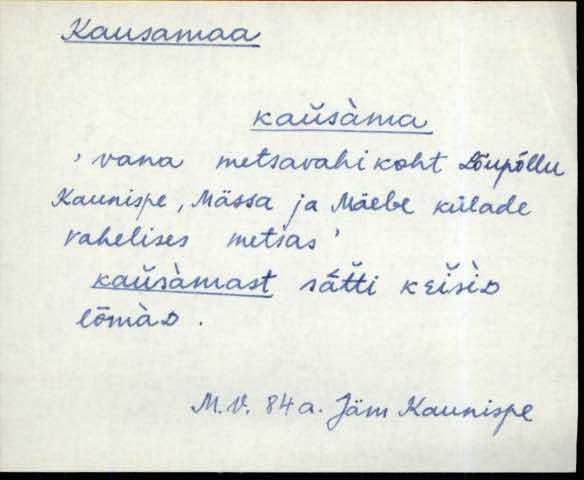 Kausamaa
kaŭsàma
' vana metsavahi koht Lõupõllu
Kaunispe, Mässa ja Mäebe külade
vahelises metsas '
kaŭsàmast sǟtti keisiD
lōmàD.
M.V. 84 a. Jäm Kaunispe